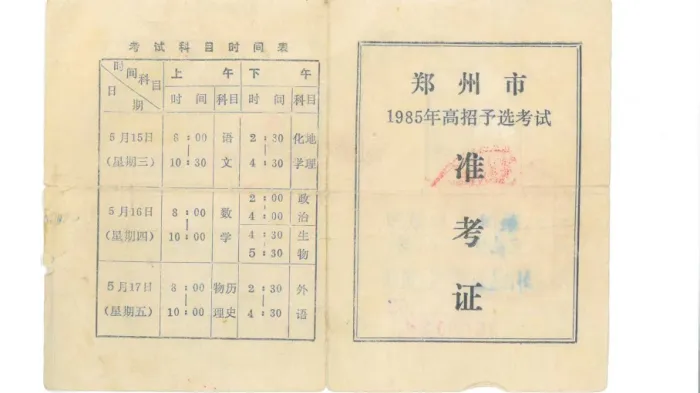 考试科目时间表
时间 科目 日期
上午 下午
时间 科目 时间 科目
5月15日 (星期三) 8:00 | 10:30 语文 2:30 | 4:30 化学 地理
5月16日 (星期四) 8:00 | 10:00 数学 2:00 | 4:00 政治
4:30 | 5:30 生物
5月17日 (星期五) 8:00 | 10:00 物理 历史 2:30 | 4:30 外语
郑州市
1985年高招予选考试
准
考
证